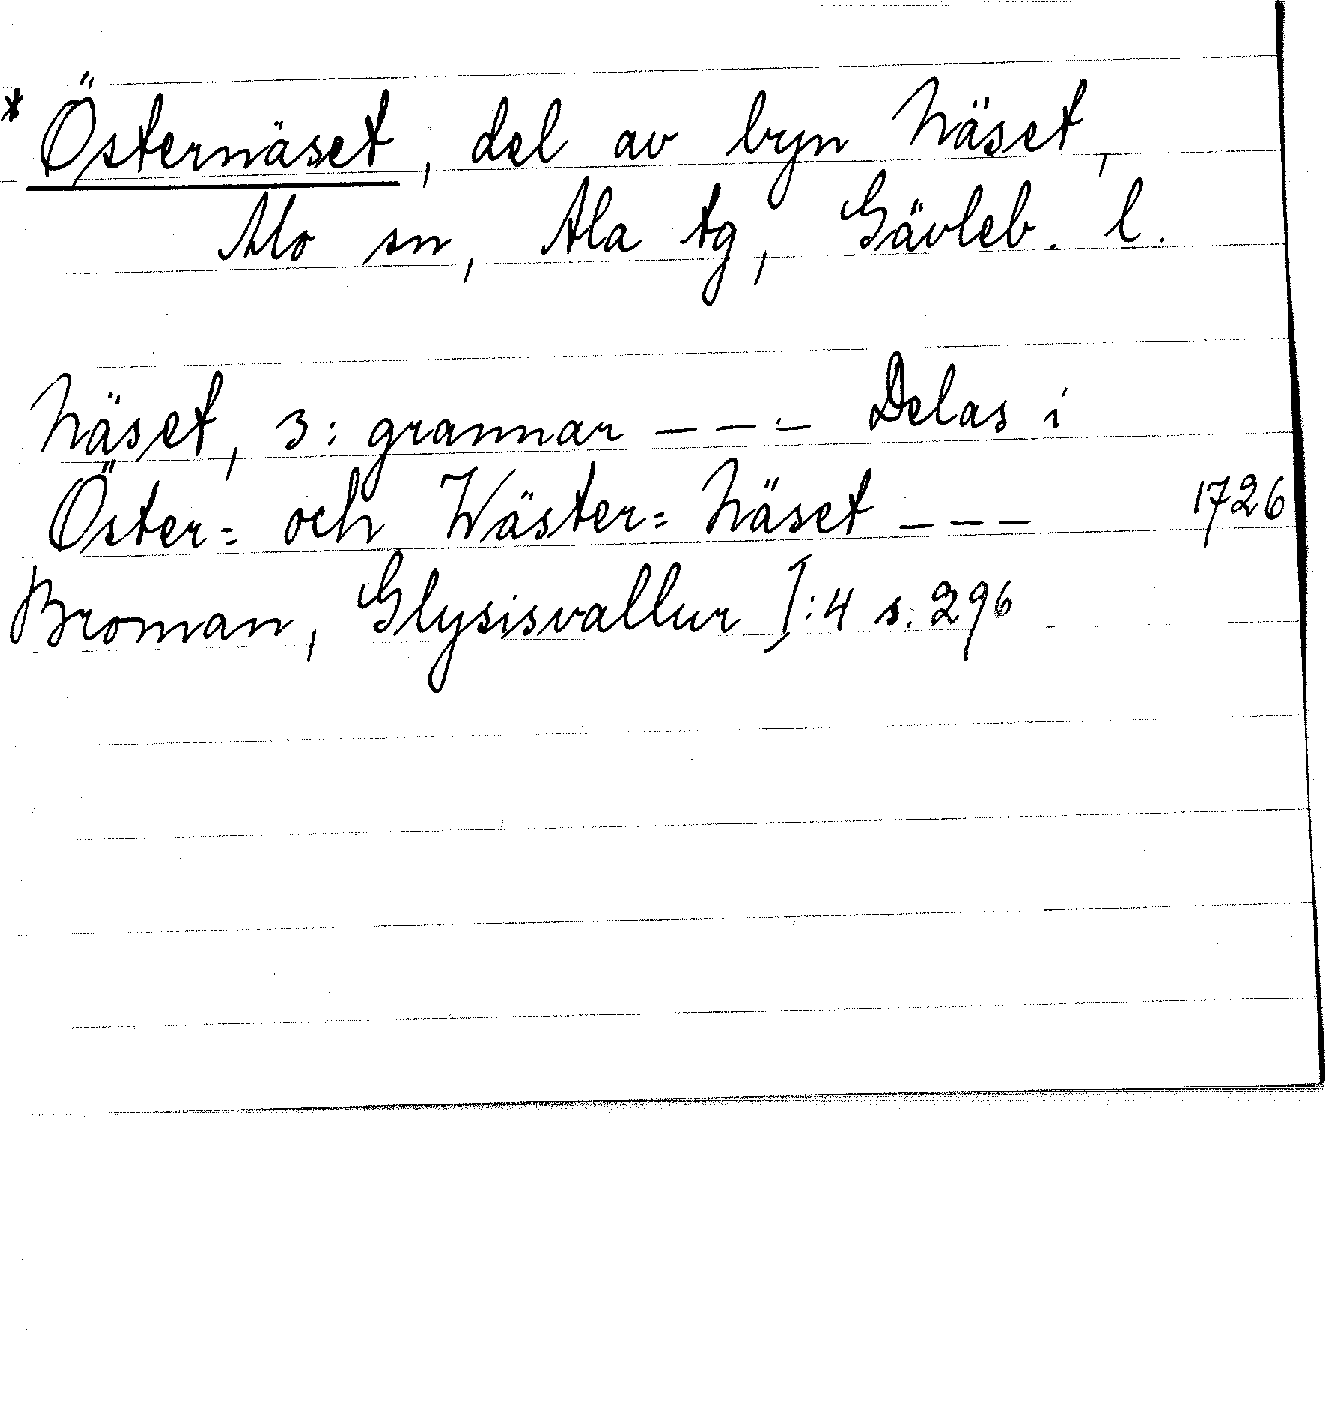 * Östernäset, del av byn Näset,
Alo sn, Ala tg, Gävleb. l.
Näset, 3: grannar – – – Delas i
Öster= och Wäster= Näset – – – 1726
Broman, Glysisvallur I:4 s. 296